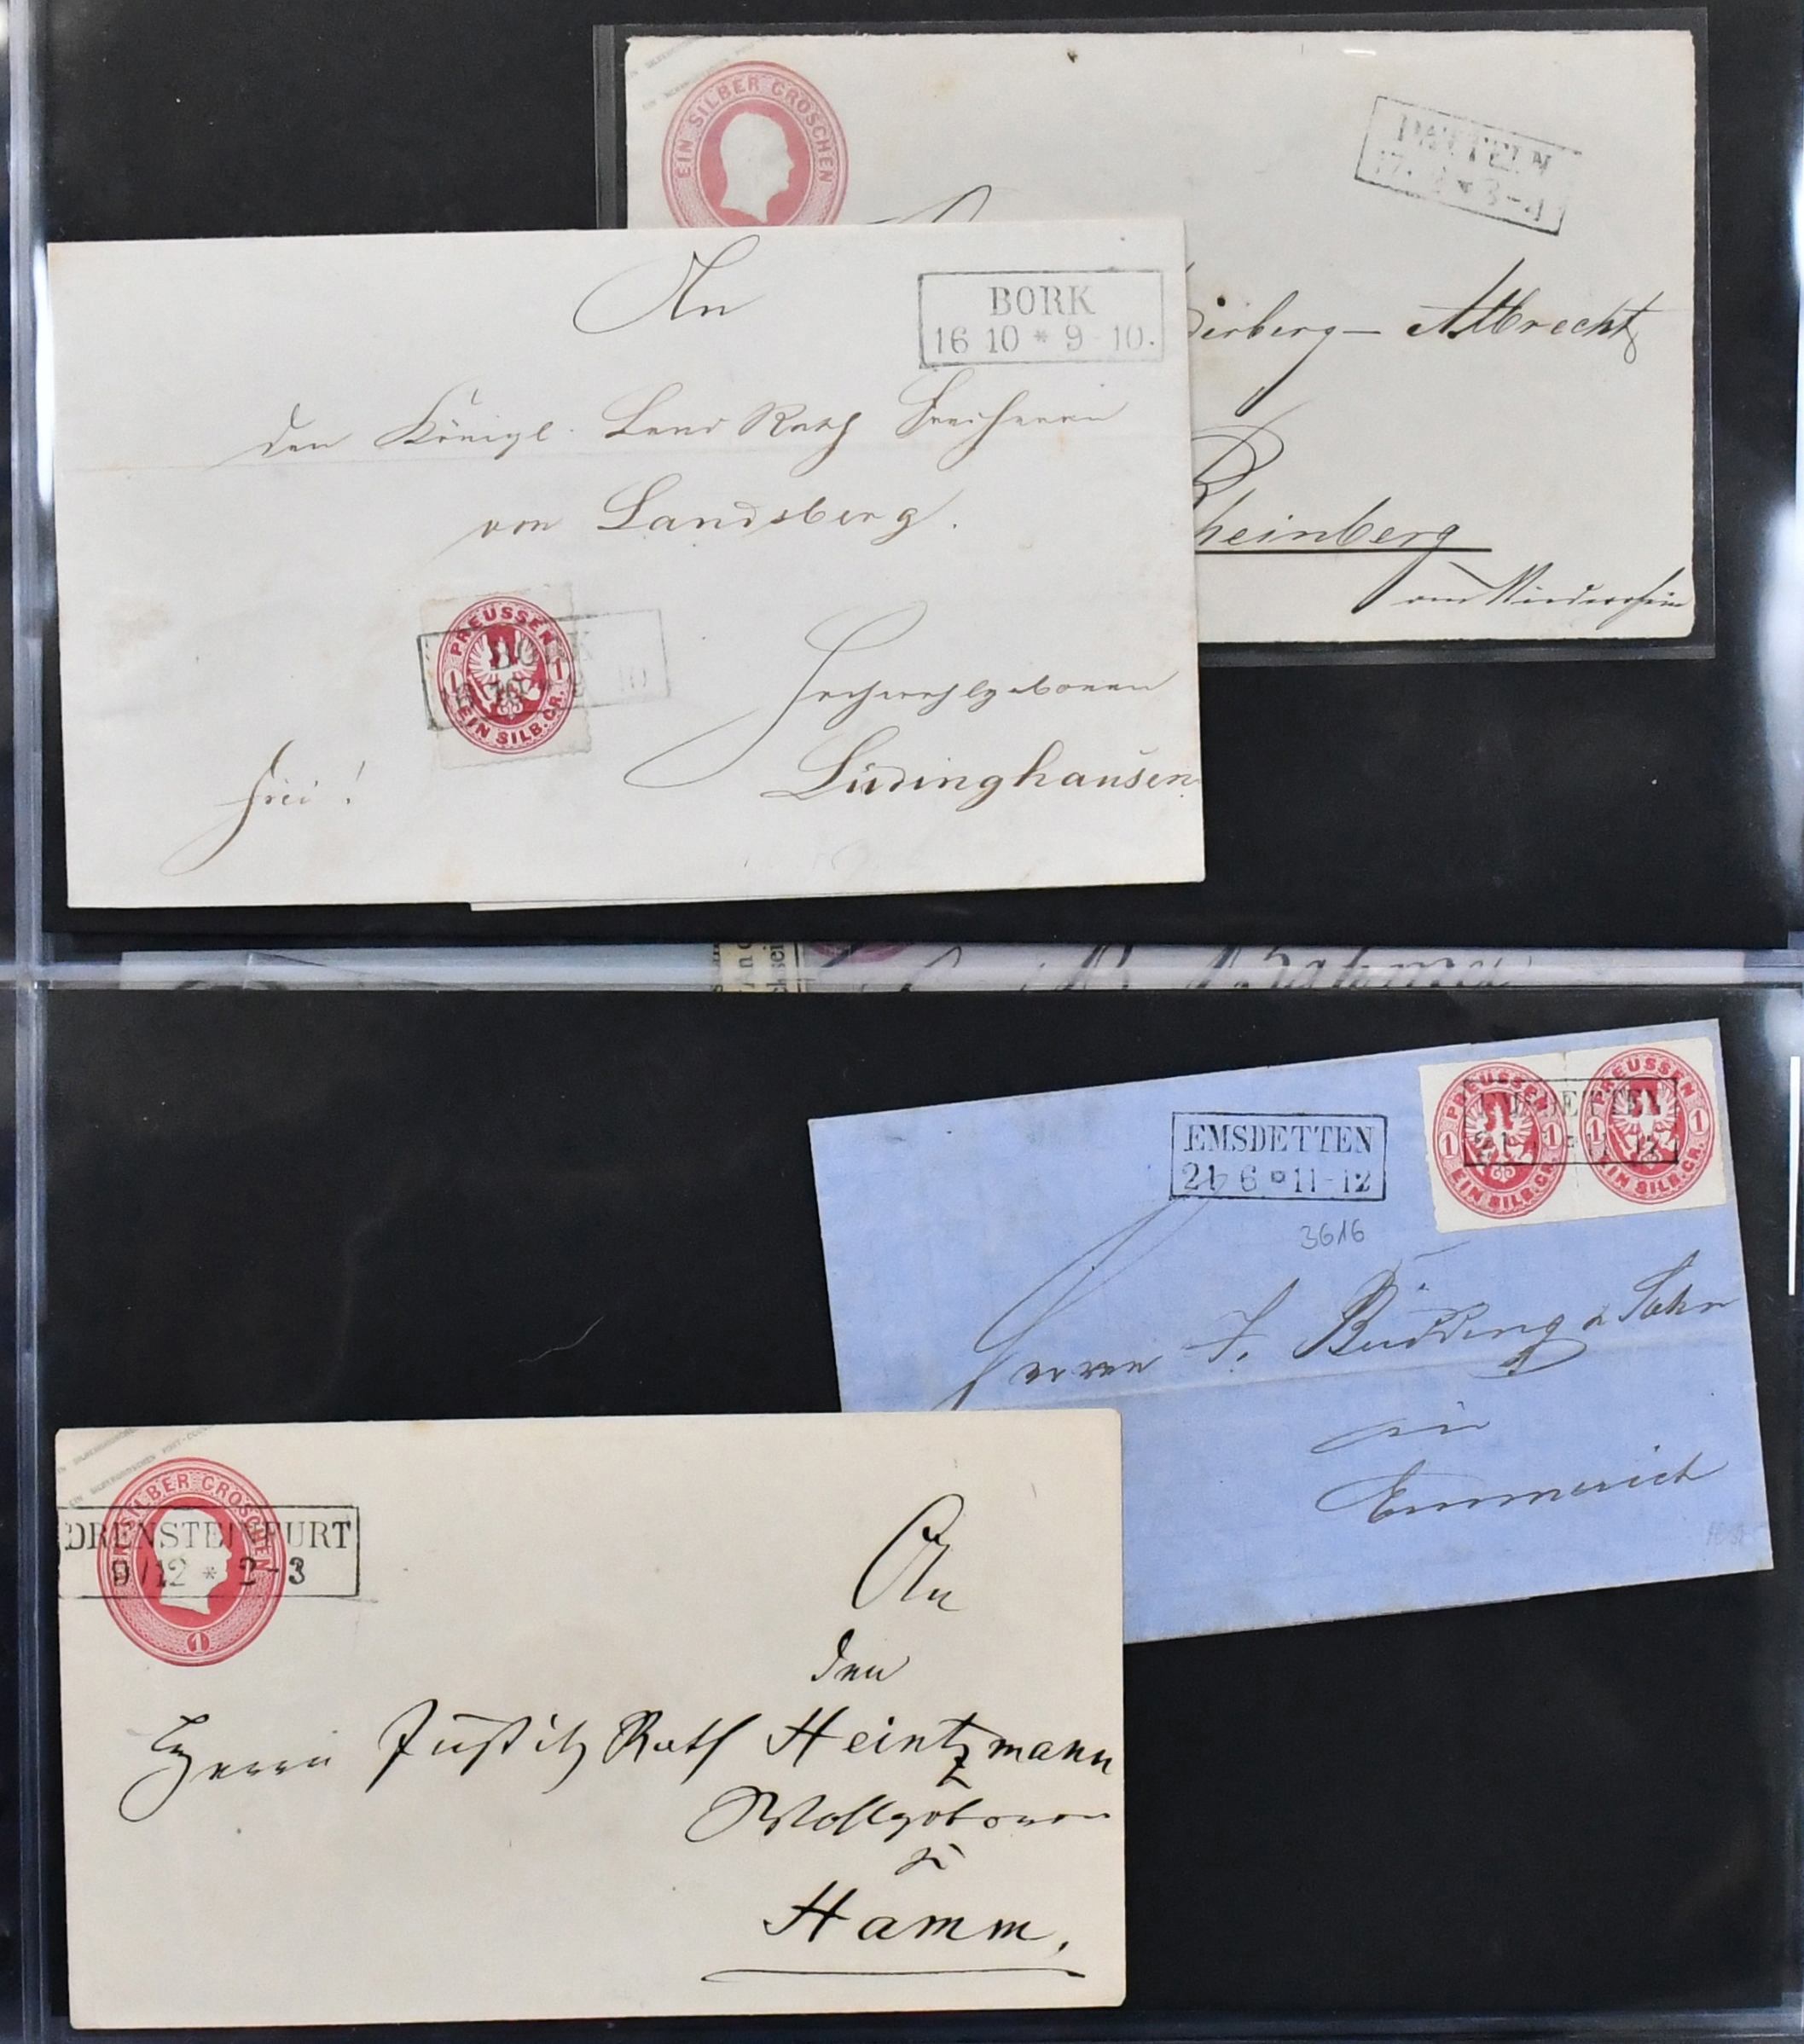 EIN SILBER GROSCHEN
DATTELN
Albrecht
Rheinberg
am Niederrhein
An
BORK
16 10 * 9-10.
den Königl. Land Rath Freiherrn
von Landsberg.
PREUSSEN
1 1
EIN SILB. GR.
BORK
16 10 * 9 10
Hochwohlgeboren
frei!
Lüdinghausen
EMSDETTEN
21 6 * 11-12
PREUSSEN
1 1
EIN SILB. GR.
PREUSSEN
1 1
EIN SILB. GR.
EMSDETTEN
3616
Herren J. Budding & Sohn
in
Emmerich
EIN SILBER GROSCHEN
1
DRENSTEINFURT
9/12 * 2-3
An
den
Herrn Justitz Rath Heintzmann
Wohlgeboren
zu
Hamm,